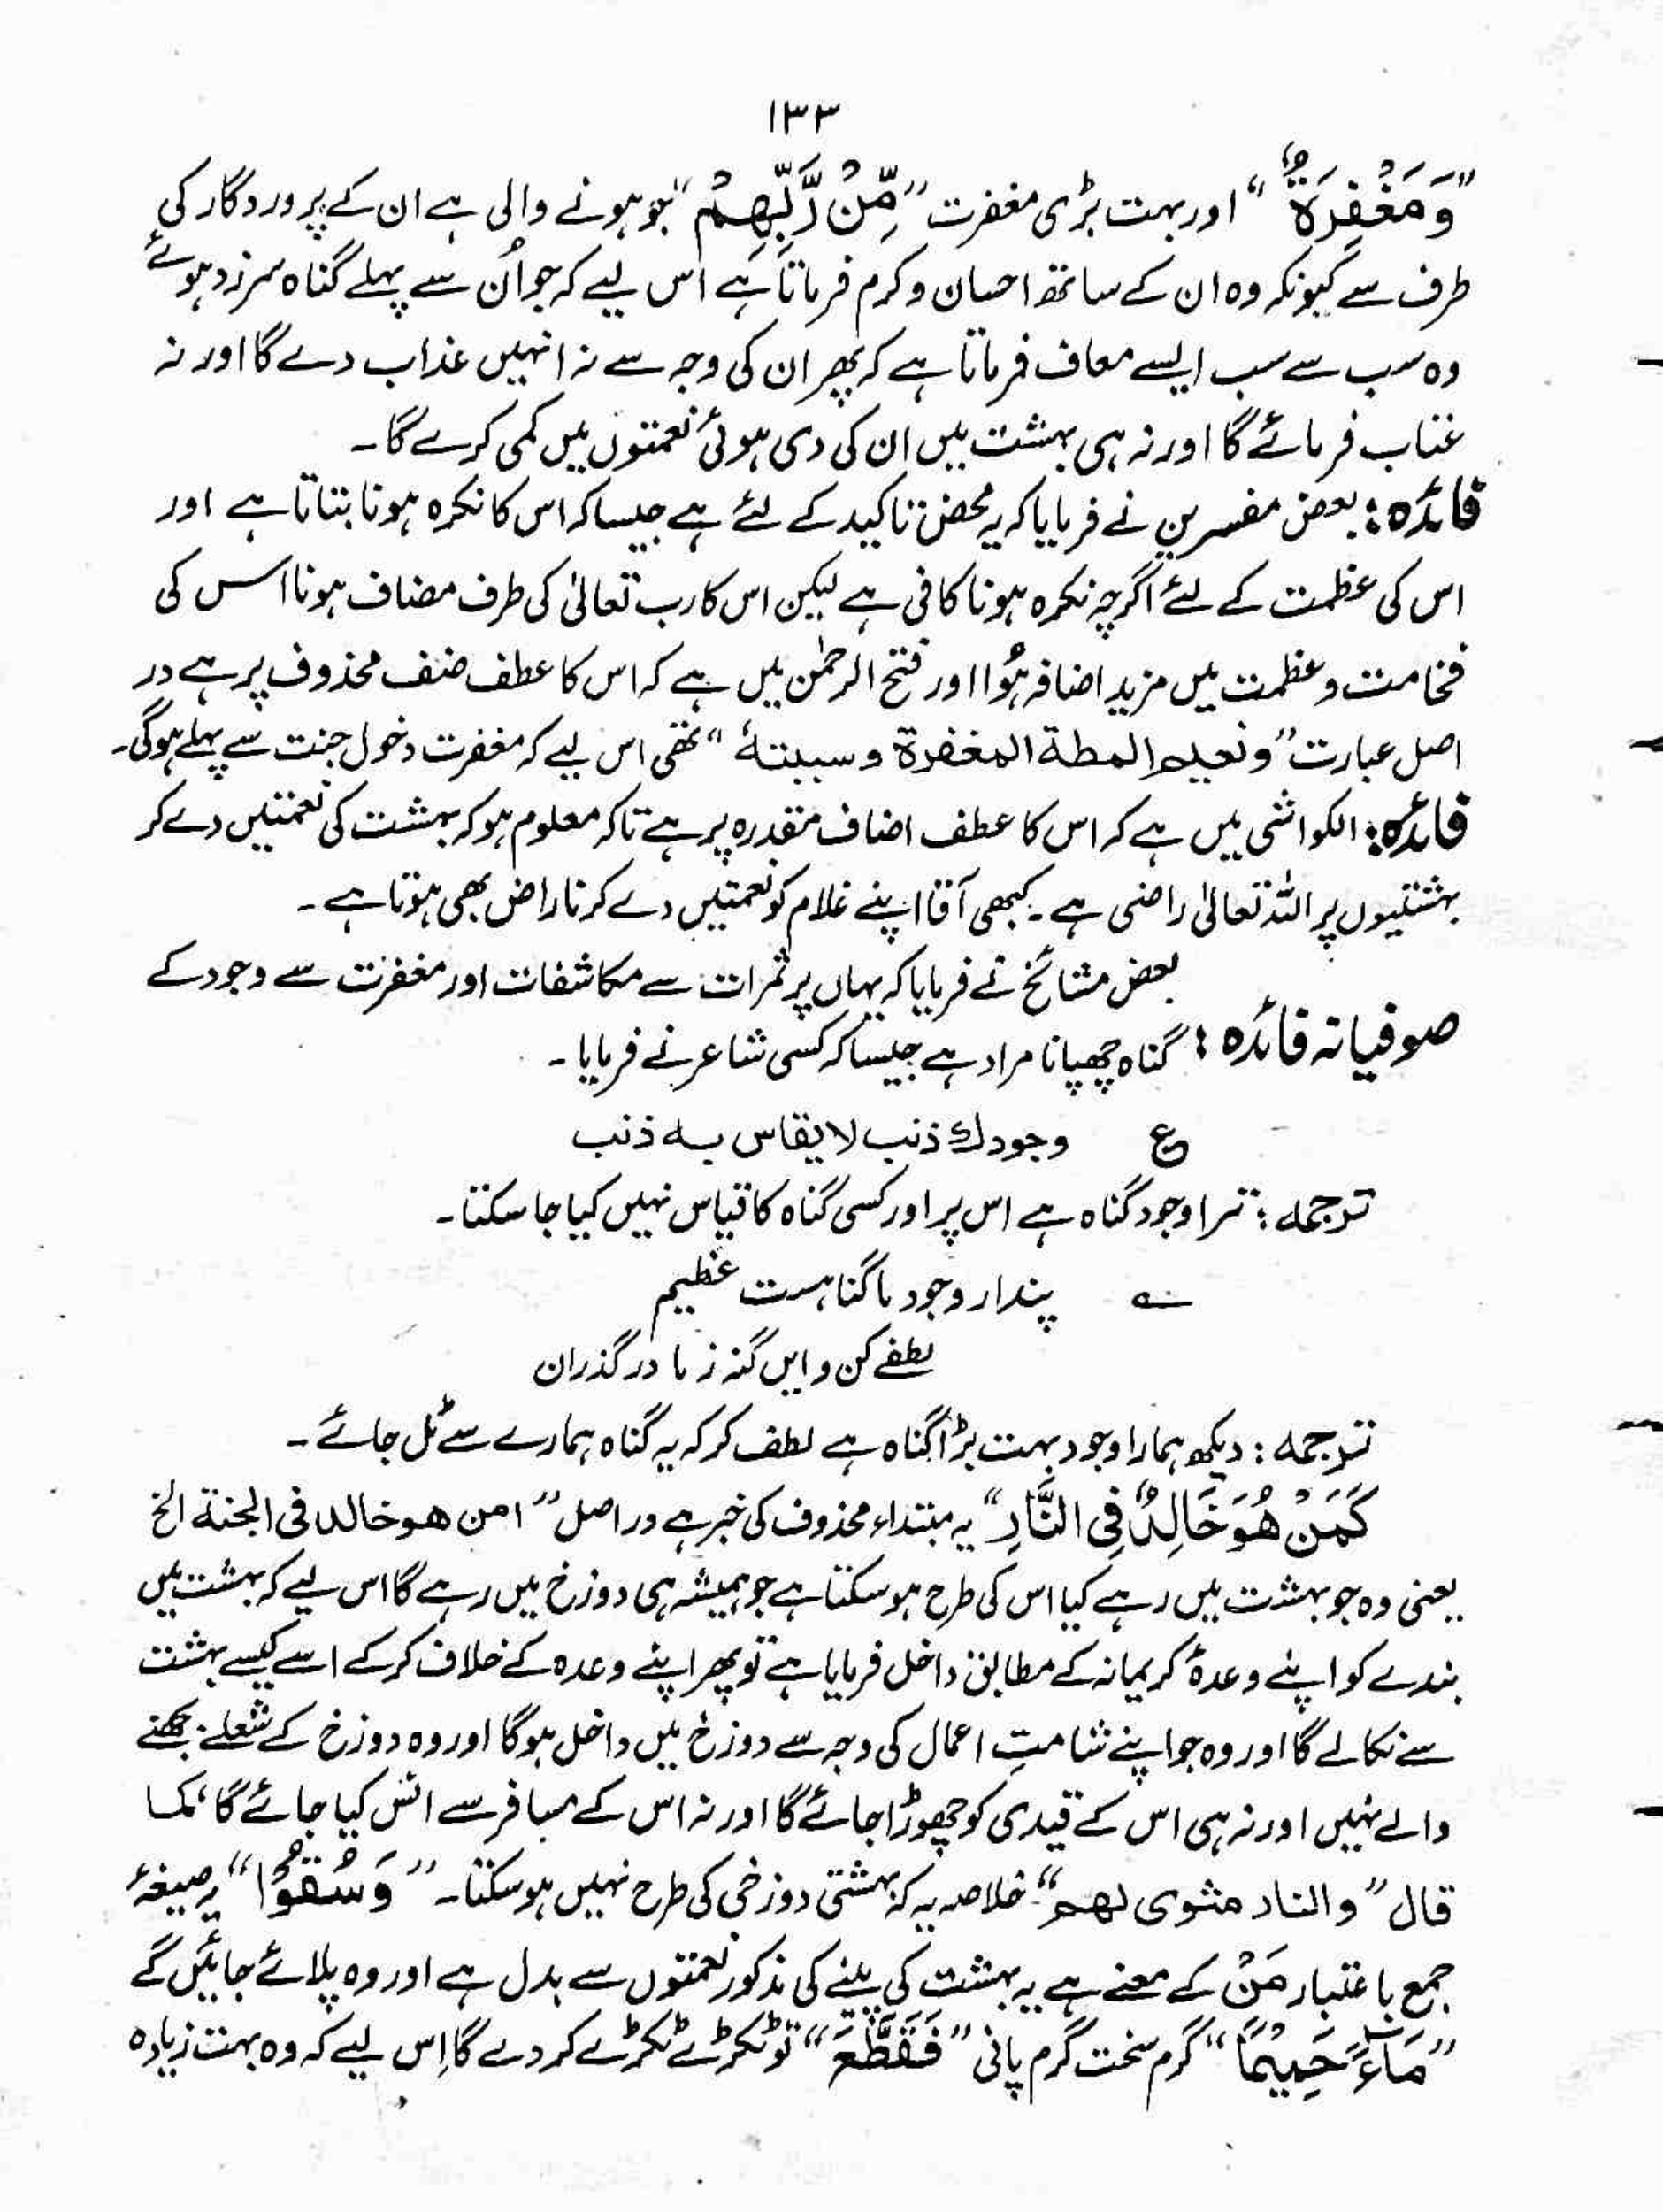 ۱۳۳
"وَمَغْفِرَةٌ" اور بہت بڑی مغفرت "مِّنْ رَّبِّهِمْ" جو ہونے والی ہے ان کے پروردگار کی
طرف سے کیونکہ وہ ان کے ساتھ احسان و کرم فرماتا ہے اس لیے کہ جو اُن سے پہلے گناہ سرزد ہوئے
وہ سب سے سب ایسے معاف فرماتا ہے کہ پھر ان کی وجہ سے نہ انہیں عذاب دے گا اور نہ
عتاب فرمائے گا اور نہ ہی بہشت میں ان کی دی ہوئی نعمتوں میں کمی کرے گا۔
فائدہ: بعض مفسرین نے فرمایا کہ یہ محض تاکید کے لئے ہے جیسا کہ اس کا نکرہ ہونا بتاتا ہے اور
اس کی عظمت کے لئے اگرچہ نکرہ ہونا کافی ہے لیکن اس کا رب تعالیٰ کی طرف مضاف ہونا اس کی
فخامت و عظمت میں مزید اضافہ ہُوا اور فتح الرحمٰن میں ہے کہ اس کا عطف صنف محذوف پر ہے در
اصل عبارت "ونعیم المطة المغفرة و سببتهٔ" تھی اس لیے کہ مغفرت دخول جنت سے پہلے ہوگی۔
فائدہ: الکواشی میں ہے کہ اس کا عطف اضاف مقدرہ پر ہے تاکہ معلوم ہو کہ بہشت کی نعمتیں دے کر
بہشتیوں پر اللہ تعالیٰ راضی ہے۔ کبھی آقا اپنے غلام کو نعمتیں دے کر ناراض بھی ہوتا ہے۔
بعض مشائخ نے فرمایا کہ یہاں پر ثمرات سے مکاشفات اور مغفرت سے وجود کے
صوفیانہ فائدہ: گناہ چھپانا مراد ہے جیسا کہ کسی شاعر نے فرمایا۔
ع وجودك ذنب لا يقاس به ذنب
ترجمہ: ترا وجود گناہ ہے اس پر اور کسی گناہ کا قیاس نہیں کیا جا سکتا۔
؎ پندار وجود ما گناہست عظیم
لطفے کن و ایں گنہ ز ما در گذران
ترجمہ: دیکھو ہمارا وجود بہت بڑا گناہ ہے لطف کر کہ یہ گناہ ہمارے سے ٹل جائے۔
كَمَنْ هُوَ خَالِدٌ فِي النَّارِ" یہ مبتداء محذوف کی خبر ہے دراصل "امن هو خالد فی الجنة الخ
یعنی وہ جو بہشت میں رہے کیا اس کی طرح ہو سکتا ہے جو ہمیشہ ہی دوزخ میں رہے گا اس لیے کہ بہشت میں
بندے کو اپنے وعدۂ کریمانہ کے مطابق داخل فرمایا ہے تو پھر اپنے وعدہ کے خلاف کر کے اسے کیسے بہشت
سے نکالے گا اور وہ جو اپنے شامتِ اعمال کی وجہ سے دوزخ میں داخل ہوگا اور وہ دوزخ کے شعلے بجھنے
والے نہیں اور نہ ہی اس کے قیدی کو چھوڑا جائے گا اور نہ اس کے مسافر سے انس کیا جائے گا، کما
قال "والنار مثوی لهم"۔ خلاصہ یہ کہ بہشتی دوزخی کی طرح نہیں ہو سکتا۔ "وَسُقُوْا" یہ صیغۂ
جمع باعتبار مَنْ کے معنے ہے یہ بہشت کی پینے کی مذکور نعمتوں سے بدل ہے اور وہ پلائے جائیں گے
"مَآءً حَمِيْمًا" گرم سخت گرم پانی "فَقَطَّعَ" تو ٹکڑے ٹکڑے کر دے گا اِس لیے کہ وہ بہت زیادہ